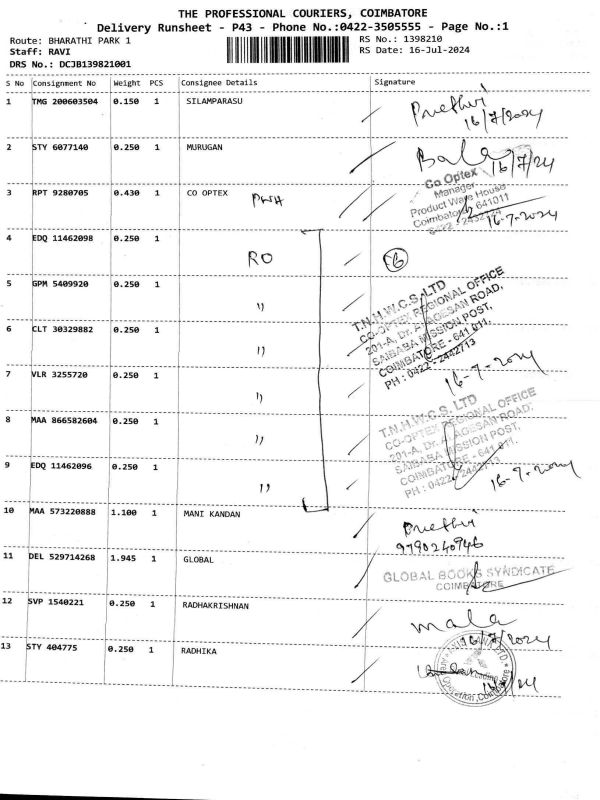 THE PROFESSIONAL COURIERS, COIMBATORE
Delivery Runsheet - P43 - Phone No.:0422-3505555 - Page No.:1
Route: BHARATHI PARK 1
RS No.: 1398210
Staff: RAVI
RS Date: 16-Jul-2024
DRS No.: DCJB139821001
S No Consignment No Weight PCS Consignee Details Signature
1 TMG 200603504 0.150 1 SILAMPARASU
Preethvi
16/7/2024
2 STY 6077140 0.250 1 MURUGAN
Bala
16/7/24
3 RPT 9280705 0.430 1 CO OPTEX PWH
Co Optex
Manager
Product Ware House
Coimbatore 641011
16-7-2024
4 EDQ 11462098 0.250 1 RO
5 GPM 5409920 0.250 1 "
T.N.H.W.C.S.LTD
CO-OPTEX REGIONAL OFFICE
201-A, Dr. ALAGESAN ROAD,
SAIBABA MISSION POST,
COIMBATORE - 641 011.
PH : 0422 - 2442713
6 CLT 30329882 0.250 1 "
7 VLR 3255720 0.250 1 "
16-7-2024
8 MAA 866582604 0.250 1 "
T.N.H.W.C.S. LTD
CO-OPTEX REGIONAL OFFICE
201-A, Dr. ALAGESAN ROAD,
SAIBABA MISSION POST,
COIMBATORE - 641 011.
PH : 0422 - 2442713
9 EDQ 11462096 0.250 1 "
16-7-2024
10 MAA 573220888 1.100 1 MANI KANDAN
Preethvi
9790240946
11 DEL 529714268 1.945 1 GLOBAL
GLOBAL BOOKS SYNDICATE
COIMBATORE
12 SVP 1540221 0.250 1 RADHAKRISHNAN
mala
16/7/2024
13 STY 404775 0.250 1 RADHIKA